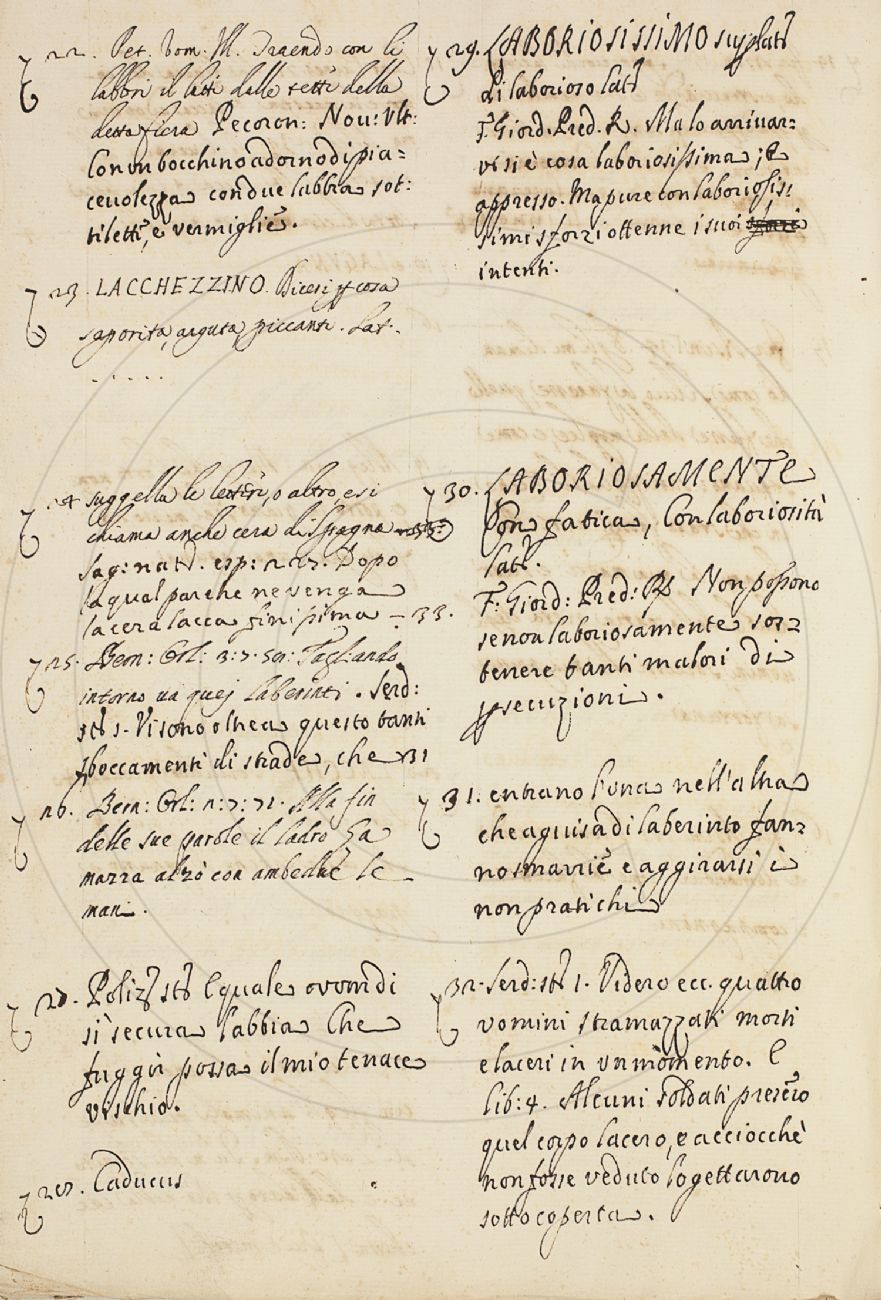 22. Pet. Vom. Ill. Traendo con le
labbri il latte dalle tette della
detta fiera Pecoron: Nou: Vlt:
Con un bocchino adorno di pia=
ceuolezza con due labbra sot:
tilette, e vermiglie.
23. LACCHEZZINO. Dicesi p cosa
saporita, arguta, piccante. Lat.
. . . . .
24 suggella le lettere, o altro, e si
chiama anche cera di Spagna
Sag: nat. esp: 227. Dopo
la qual parche ne venga
la cera lacca finissima – 33.
25. Bern: Orl: 3: 7. 50: Tagliando
intorno va quej laberinti. Serd:
st: 1. Vi sono oltrea questo tanti
sboccamenti di strade, che 31
26. Bern: Orl: 2: 7: 71. Alla fin
delle sue parole il ladro La
mazza alzò con ambedue le
mani.
27. Poliz. st: E quale ovom di
si secura labbia Che
fuggir possa il mio tenace
vischio.
28. Caducus
29. LABORIOSISSIMO suplat
di laborioso lat
F. Giord. Pred. R. Ma lo arriuar=
vi si è cosa laboriosissima; E
appresso. Ma pure con laboriosis:
simi sforzi ottenne i suoi
intenti.
30. LABORIOSAMENTE
Con fatica, Con laboriosità
lat.
F: Giord: Pred: R Non possono
se non laboriosamente sos=
tenere tanti malori di
psecuzioni.
31. entrano l'una nell'altra
che a guisa di laberinto fan=
no smarrire e aggirarsi i
non pratichi
32. Serd: st: 1. Videro ecc. quattro
vomini stramazzati morti
e laceri in vn momento. E
lib: 4. Alcuni soldati presero
quel corpo lacero, e acciocchè
non fosse veduto lo gettarono
sotto coperta.